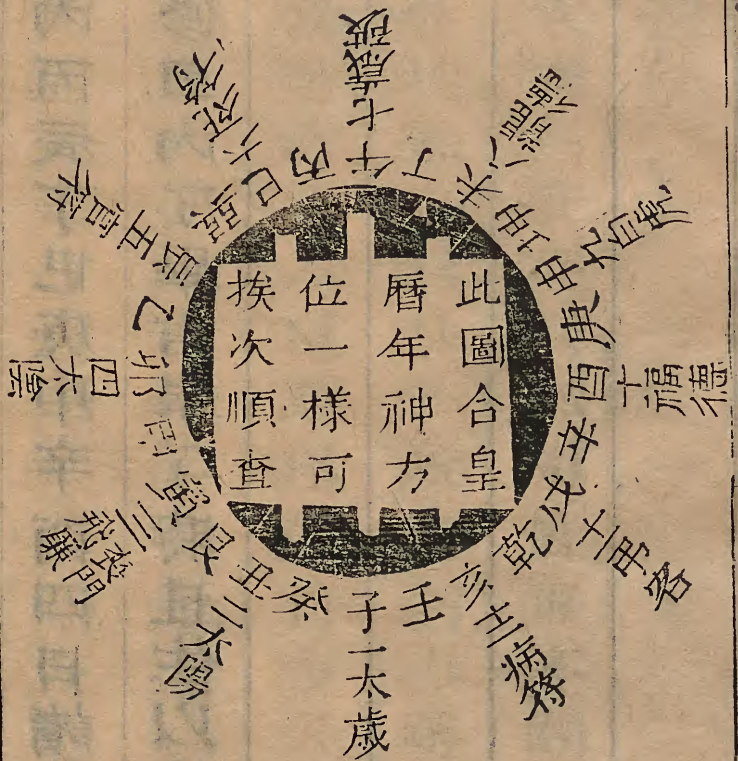 此圖合皇
曆年神方
位一樣可
挨次順查
子一太歲
癸
丑二太陽
艮
寅三喪門
飛廉
甲
卯四太陰
乙
辰五官符
巽
巳六死符
丙
午七歲破
丁
未八
坤
申九白虎
庚
酉十福德
辛
戌十一弔客
乾
亥十二病符
壬